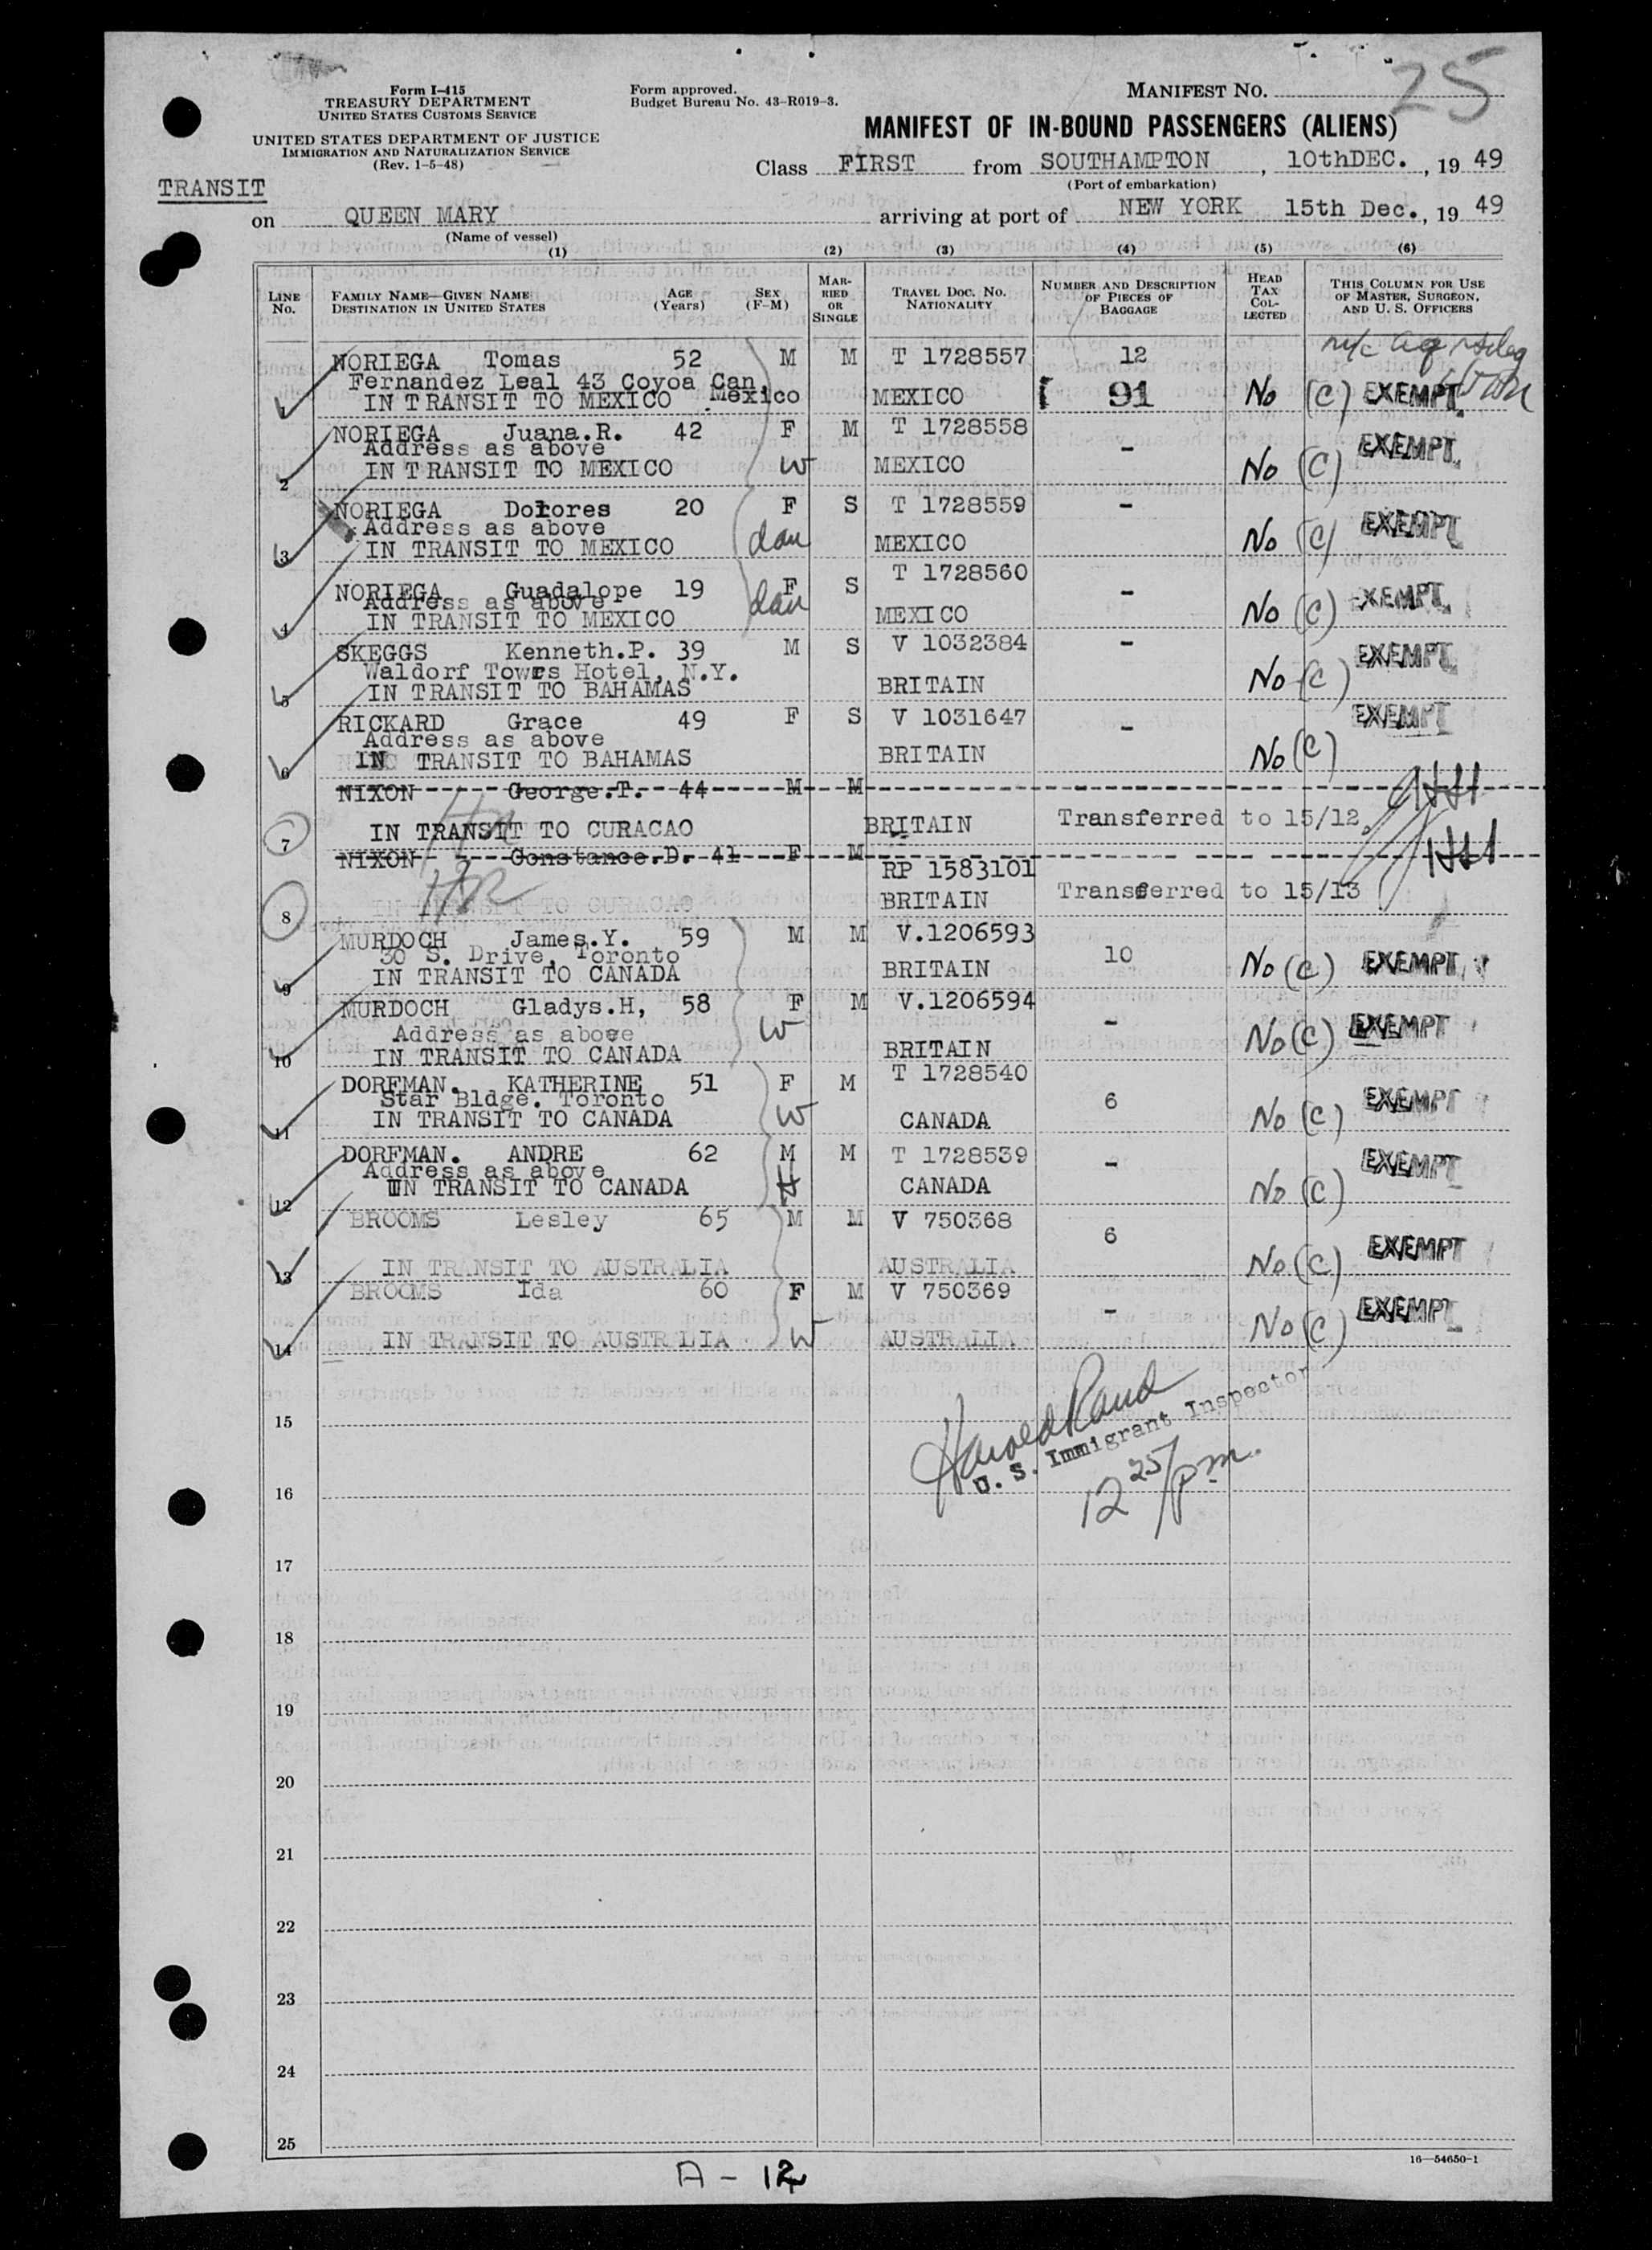 25
Form I-415
TREASURY DEPARTMENT
UNITED STATES CUSTOMS SERVICE
UNITED STATES DEPARTMENT OF JUSTICE
IMMIGRATION AND NATURALIZATION SERVICE
(Rev. 1-5-48)
Form approved.
Budget Bureau No. 43-R019-3.
MANIFEST NO.
MANIFEST OF IN-BOUND PASSENGERS (ALIENS)
Class FIRST from SOUTHAMPTON, 10thDEC., 19 49
(Port of embarkation)
TRANSIT
on QUEEN MARY arriving at port of NEW YORK 15th Dec., 19 49
(Name of vessel)
(1) (2) (3) (4) (5) (6)
LINE No.
FAMILY NAME—GIVEN NAME
DESTINATION IN UNITED STATES
AGE (Years)
SEX (F-M)
MARRIED OR SINGLE
TRAVEL DOC. NO.
NATIONALITY
NUMBER AND DESCRIPTION OF PIECES OF BAGGAGE
HEAD TAX COLLECTED
THIS COLUMN FOR USE OF MASTER, SURGEON, AND U. S. OFFICERS
NORIEGA Tomas 52 M M T 1728557 12
Fernandez Leal 43 Coyoa Can,
1 IN TRANSIT TO MEXICO Mexico MEXICO 91 No (C) EXEMPT
NORIEGA Juana.R. 42 F M T 1728558 -
Address as above
2 IN TRANSIT TO MEXICO W MEXICO No (C) EXEMPT
NORIEGA Dolores 20 F S T 1728559 -
Address as above
3 IN TRANSIT TO MEXICO dau MEXICO No (C) EXEMPT
NORIEGA Guadalope 19 F S T 1728560 -
Address as above
4 IN TRANSIT TO MEXICO dau MEXICO No (C) EXEMPT
SKEGGS Kenneth.P. 39 M S V 1032384 -
Waldorf Towrs Hotel, N.Y.
5 IN TRANSIT TO BAHAMAS BRITAIN No (C) EXEMPT
RICKARD Grace 49 F S V 1031647 -
Address as above
6 IN TRANSIT TO BAHAMAS BRITAIN No (C) EXEMPT
NIXON George.T. 44 M M
7 IN TRANSIT TO CURACAO BRITAIN Transferred to 15/12.
NIXON Constance.D. 41 F M RP 1583101
8 IN TRANSIT TO CURACAO BRITAIN Transferred to 15/13
MURDOCH James.Y. 59 M M V.1206593 10
30 S. Drive, Toronto
9 IN TRANSIT TO CANADA BRITAIN No (C) EXEMPT
MURDOCH Gladys.H, 58 F M V.1206594 -
Address as above W
10 IN TRANSIT TO CANADA BRITAIN No (C) EXEMPT
DORFMAN. KATHERINE 51 F M T 1728540 6
Star Bldge. Toronto
11 IN TRANSIT TO CANADA W CANADA No (C) EXEMPT
DORFMAN. ANDRE 62 M M T 1728539 -
Address as above
12 IN TRANSIT TO CANADA H CANADA No (C) EXEMPT
BROOMS Lesley 65 M M V 750368 6
13 IN TRANSIT TO AUSTRALIA AUSTRALIA No (C) EXEMPT
BROOMS Ida 60 F M V 750369 -
14 IN TRANSIT TO AUSTRALIA W AUSTRALIA No (C) EXEMPT
Harold Rand
U. S. Immigrant Inspector
12 25/pm.
15
16
17
18
19
20
21
22
23
24
25
16—54650-1
A - 12